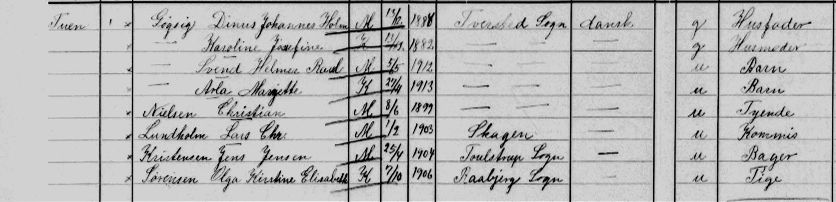 Tuen 1 × Gøgsig Dinus Johannes Holm M 1888 Tversted Sogn dansk g Husfader
× — Karoline Josefine K 1882 — — — g Husmoder
× — Svend Helmer Raul M 5/5 1912 — — — u Barn
× — Asla Margrethe K 27/4 1913 — — — u Barn
× Nielsen Christian M 8/6 1899 — — — u Tyende
× Lundholm Lars Chr. M 1/2 1903 Skagen — u Kommis
× Kristensen Jens Jensen M 25/4 1904 Toulstrup Sogn — u Bager
× Sørensen Olga Kirstine Elisabeth K 7/10 1906 Raabjerg Sogn — u Pige